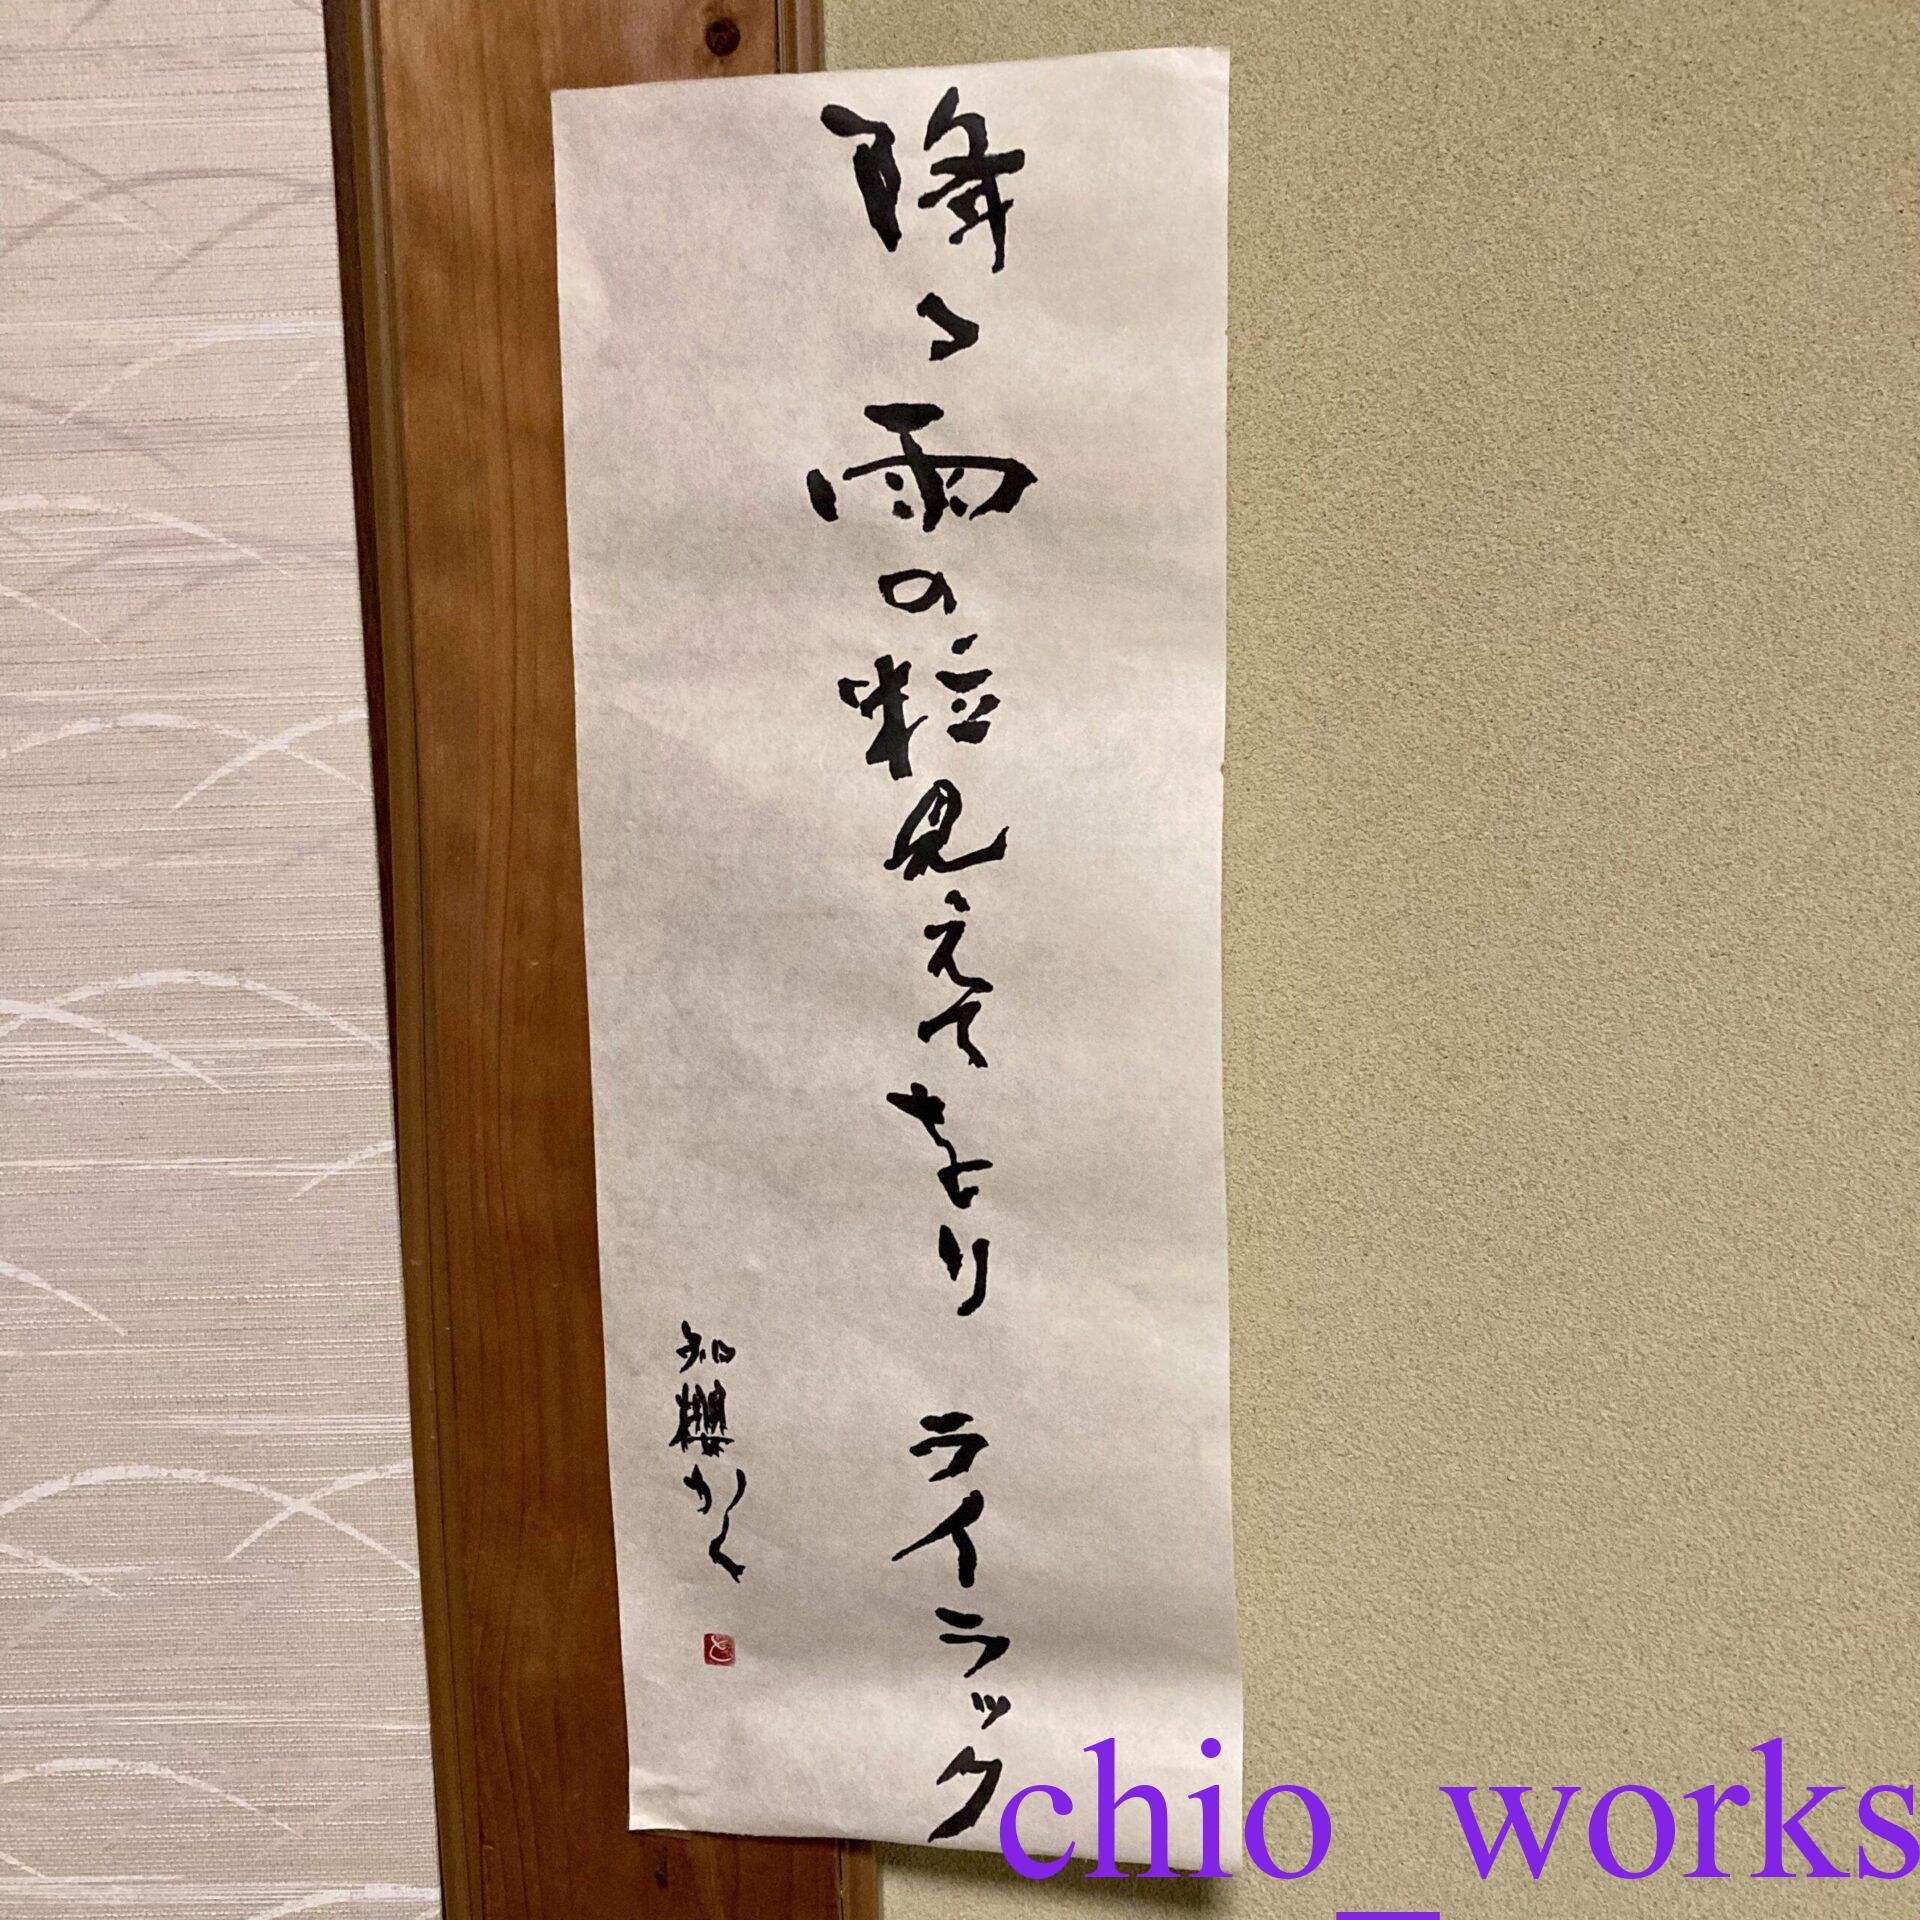 降る雨の粒見えてをりライラック
知櫻かく
と
chio_works